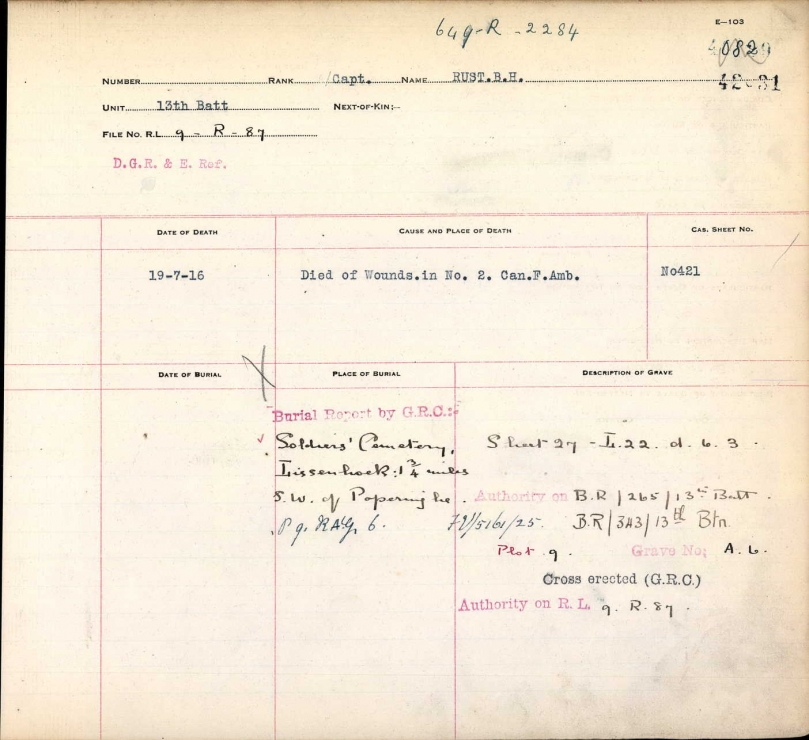 649-R-2284
E-103
NUMBER RANK Capt. NAME RUST.B.H.
42 31
UNIT 13th Batt NEXT-OF-KIN:-
FILE NO. R.L. 9 - R - 87
D.G.R. & E. Ref.
DATE OF DEATH CAUSE AND PLACE OF DEATH CAS. SHEET NO.
19-7-16 Died of Wounds.in No. 2. Can.F.Amb. No421
DATE OF BURIAL PLACE OF BURIAL DESCRIPTION OF GRAVE
Burial Report by G.R.C.:-
Soldiers' Cemetery, Sheet 27 - L.22. d. 6. 3.
Lissenhoek: 1 3/4 miles
S.W. of Poperinghe. Authority on B.R/265/13th Batt.
6. /5161/25. B.R/343/13th Btn
Plot 9. Grave No; A. 6.
Cross erected (G.R.C.)
Authority on R. L. 9. R. 87.